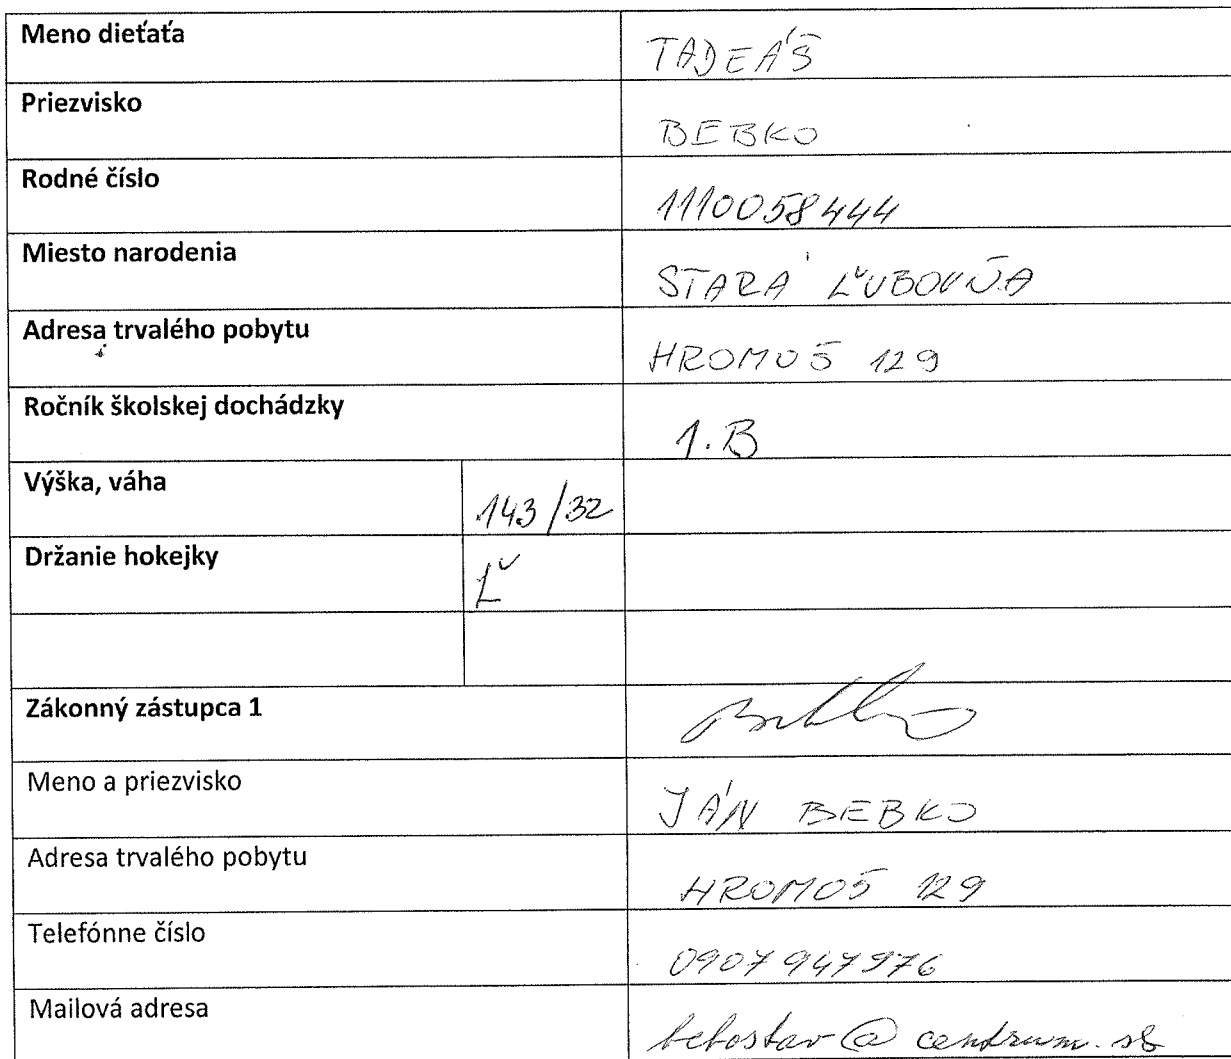 Meno dieťaťa TADEÁŠ
Priezvisko BEBKO
Rodné číslo 1110058444
Miesto narodenia STARÁ ĽUBOVŇA
Adresa trvalého pobytu HROMOŠ 129
Ročník školskej dochádzky 1.B
Výška, váha 143/32
Držanie hokejky Ľ
Zákonný zástupca 1
Meno a priezvisko JÁN BEBKO
Adresa trvalého pobytu HROMOŠ 129
Telefónne číslo 0907 947976
Mailová adresa bebostav@centrum.sk